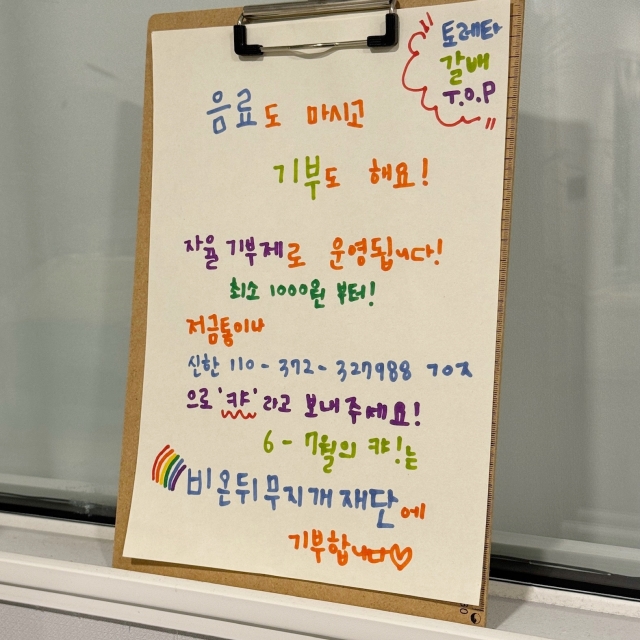 토레타
갈배
T.O.P
음료도 마시고
기부도 해요!
자율 기부제로 운영됩니다!
최소 1000원 부터!
저금통이나
신한 110-372-327988 ㄱㅇㅈ
으로 '캬' 라고 보내주세요!
6-7월의 캬!는
비온뒤무지개재단에
기부합니다♡